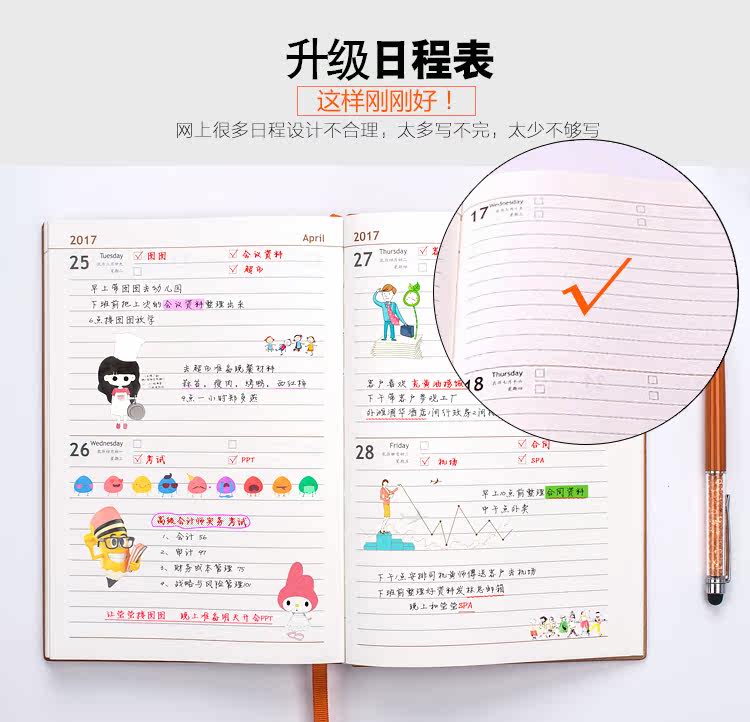 升级日程表
这样刚刚好！
网上很多日程设计不合理，太多写不完，太少不够写
2017 April
25 Tuesday
图图 会议资料
超市
早上带图图去幼儿园
下班前把上次的会议资料整理出来
6点接图图放学
去超市准备晚餐材料
蒜苔、瘦肉、烤鸭、西红柿
9点一小时郑多燕
26 Wednesday
考试 PPT
高级会计师实务 考试
1、会计 56
2、审计 97
3、财务成本管理 75
4、战略与风险管理101
让莹莹接图图 晚上准备明天开会PPT
2017
27 Thursday
客户喜欢
下午带客户参观工厂
28 Friday
合同
机场 SPA
早上10点前整理合同资料
中午点外卖
下午1点安排司机黄师傅送客户去机场
下班前整理好资料发林总邮箱
晚上和莹莹SPA
17 Wednesday
18 Thursday